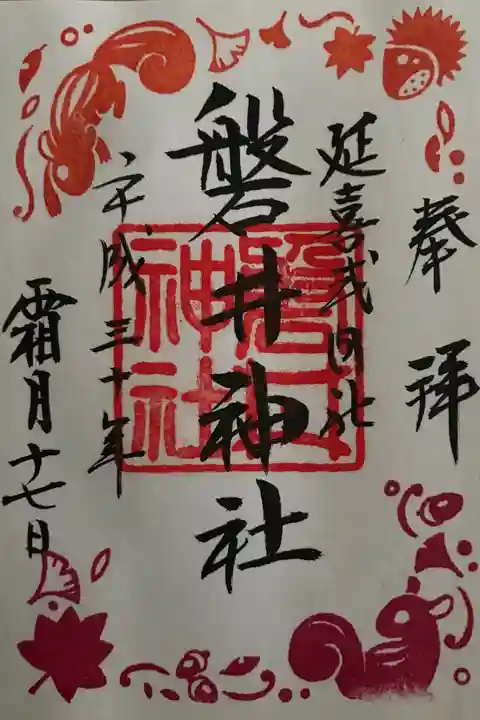 奉拝
延喜式内社
磐井神社
平成三十年
霜月十七日
磐井
神社